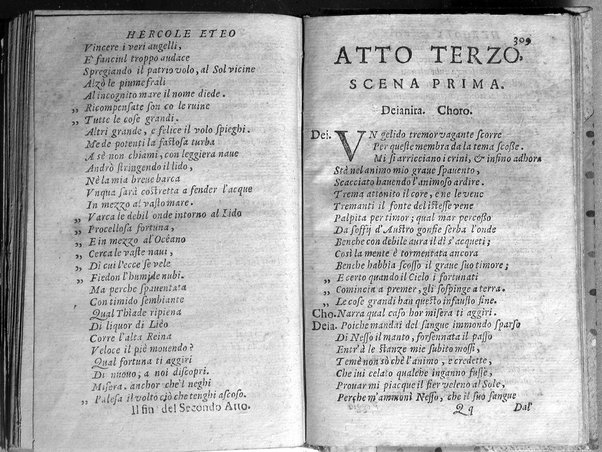 HERCOLE ETEO
Vincere i veri augelli,
E' fanciul troppo audace
Spregiando il patrio volo, al Sol vicine
Alzò le piume frali
Al incognito mare il nome diede.
„ Ricompensate son co le ruine
„ Tutte le cose grandi.
Altri grande, e felice il volo spieghi.
Me de potenti la fastosa turba
A sè non chiami, con leggiera naue
Andrò stringendo il lido,
Nè la mia breue barca
Vnqua sarà costretta a fender l'acque
In mezzo al vasto mare.
„ Varca le debil onde intorno al Lido
„ Procellosa fortuna,
„ E in mezzo al Océano
„ Cerca le vaste naui,
„ Di cui l'ecce se vele
„ Fiedon l'humide nubi.
Ma perche spauentata
Con timido sembiante
Qual Thiade ripiena
Di liquor di Lieo
Corre l'alta Reina
Veloce il piè mouendo?
Qual fortuna ti aggiri
Di nuouo, a noi discopri.
Misera. anchor che'l neghi
„ Palesa il volto ciò che tenghi ascoso.
Il fin del Secondo Atto.
309
ATTO TERZO,
SCENA PRIMA.
Deianira. Choro.
Dei. VN gelido tremor vagante scorre
Per queste membra da la tema scosse.
Mi si arricciano i crini, & insino adhora
Stà nel animo mio graue spauento,
Scacciato hauendo l'animoso ardire.
Trema attonito il core, e ne le vene
Tremanti il fonte del istesse vene
Palpita per timor; qual mar percosso
Da soffij d'Austro gonfie serba l'onde
Benche con debile aura il dì s'acqueti;
Così la mente è tormentata ancora
Benche habbia scosso il graue suo timore;
„ E certo quando il Cielo i fortunati
„ Comincia a premer, gli sospinge a terra.
„ Le cose grandi han questo infausto fine.
Cho. Narra qual caso hor misera ti aggiri.
Deia. Poiche mandai del sangue immondo sparso
Di Nesso il manto, forsennata il passo
Entr'à le stanze mie subito mossi,
Temè non sò chè l'animo, e credette,
Che iui celato qualche inganno fusse,
Prouar mi piacque il fier veleno al Sole,
Perche m'ammonì Nesso, che il suo sangue
Qq Dal